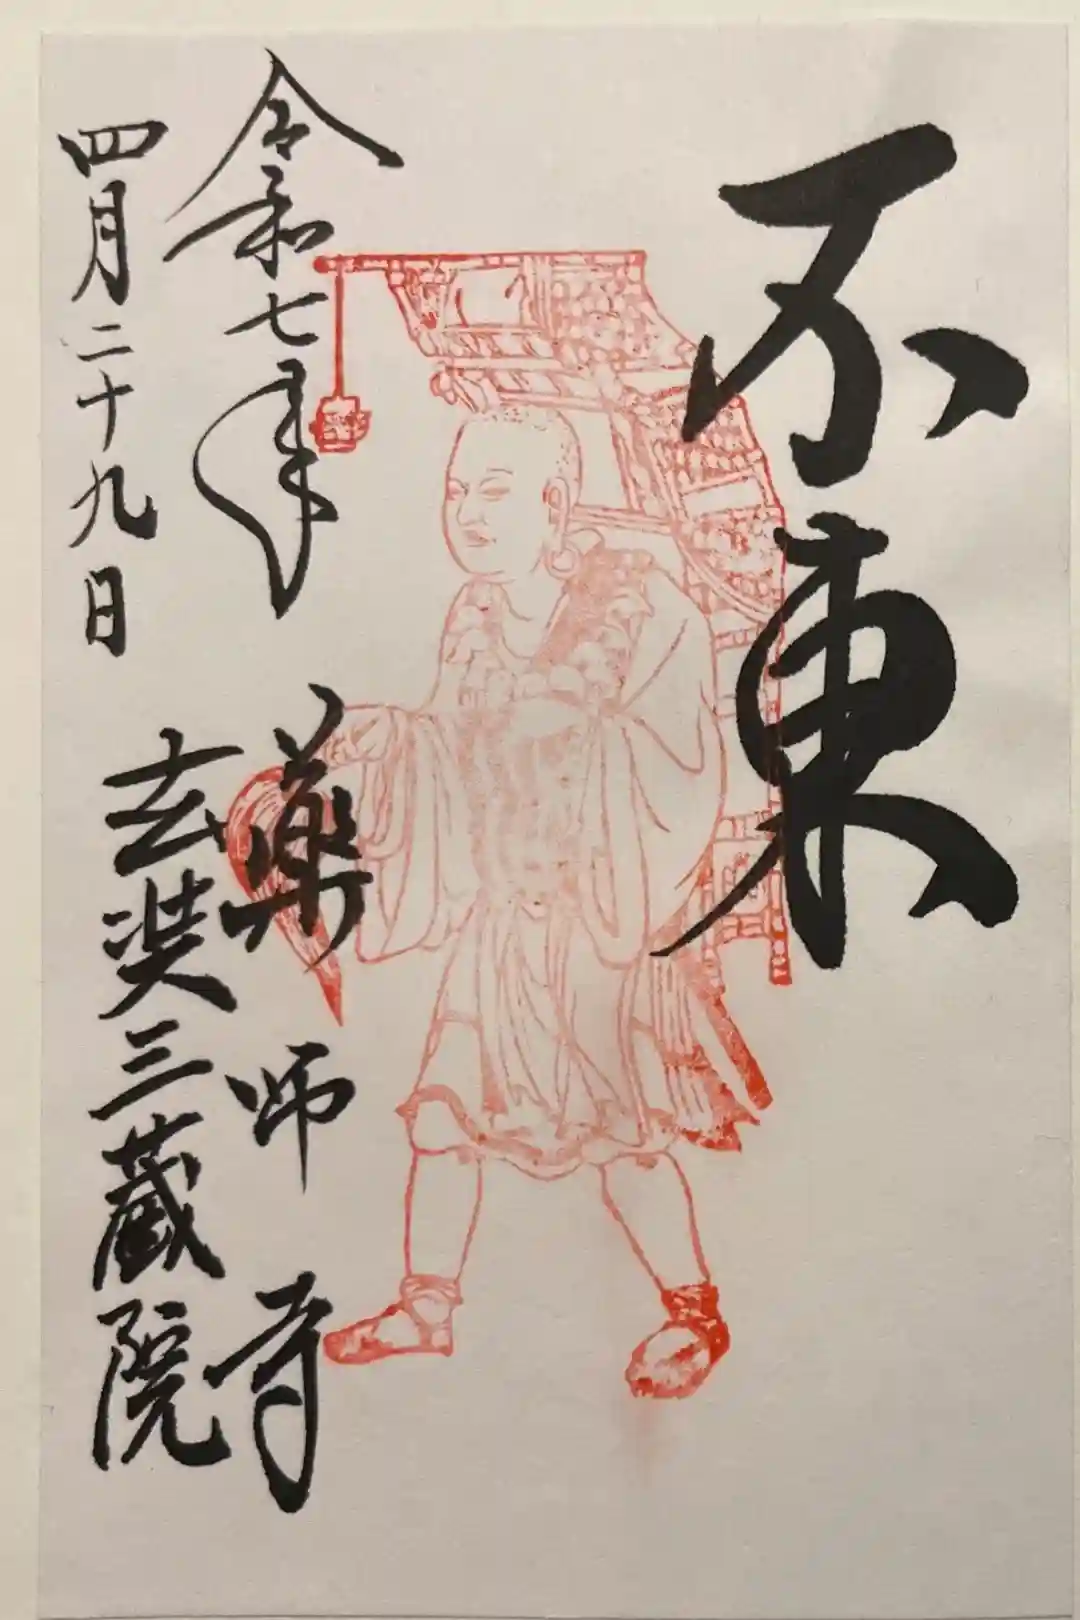 不東
令和七年
四月二十九日
藥師寺
玄奘三蔵院